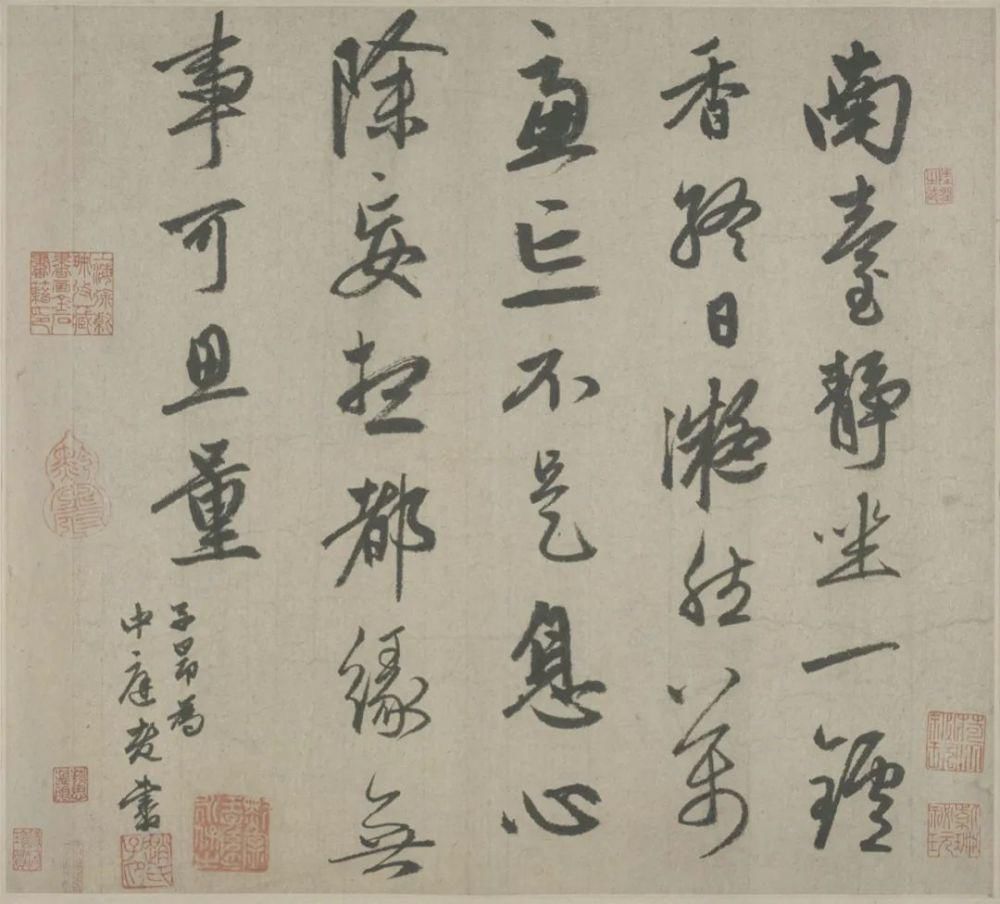 南臺靜坐一鑪
香終日凝然萬
慮忘不是息心
除妄想都緣無
事可思量
子昂為
中庭老書
趙氏子昂